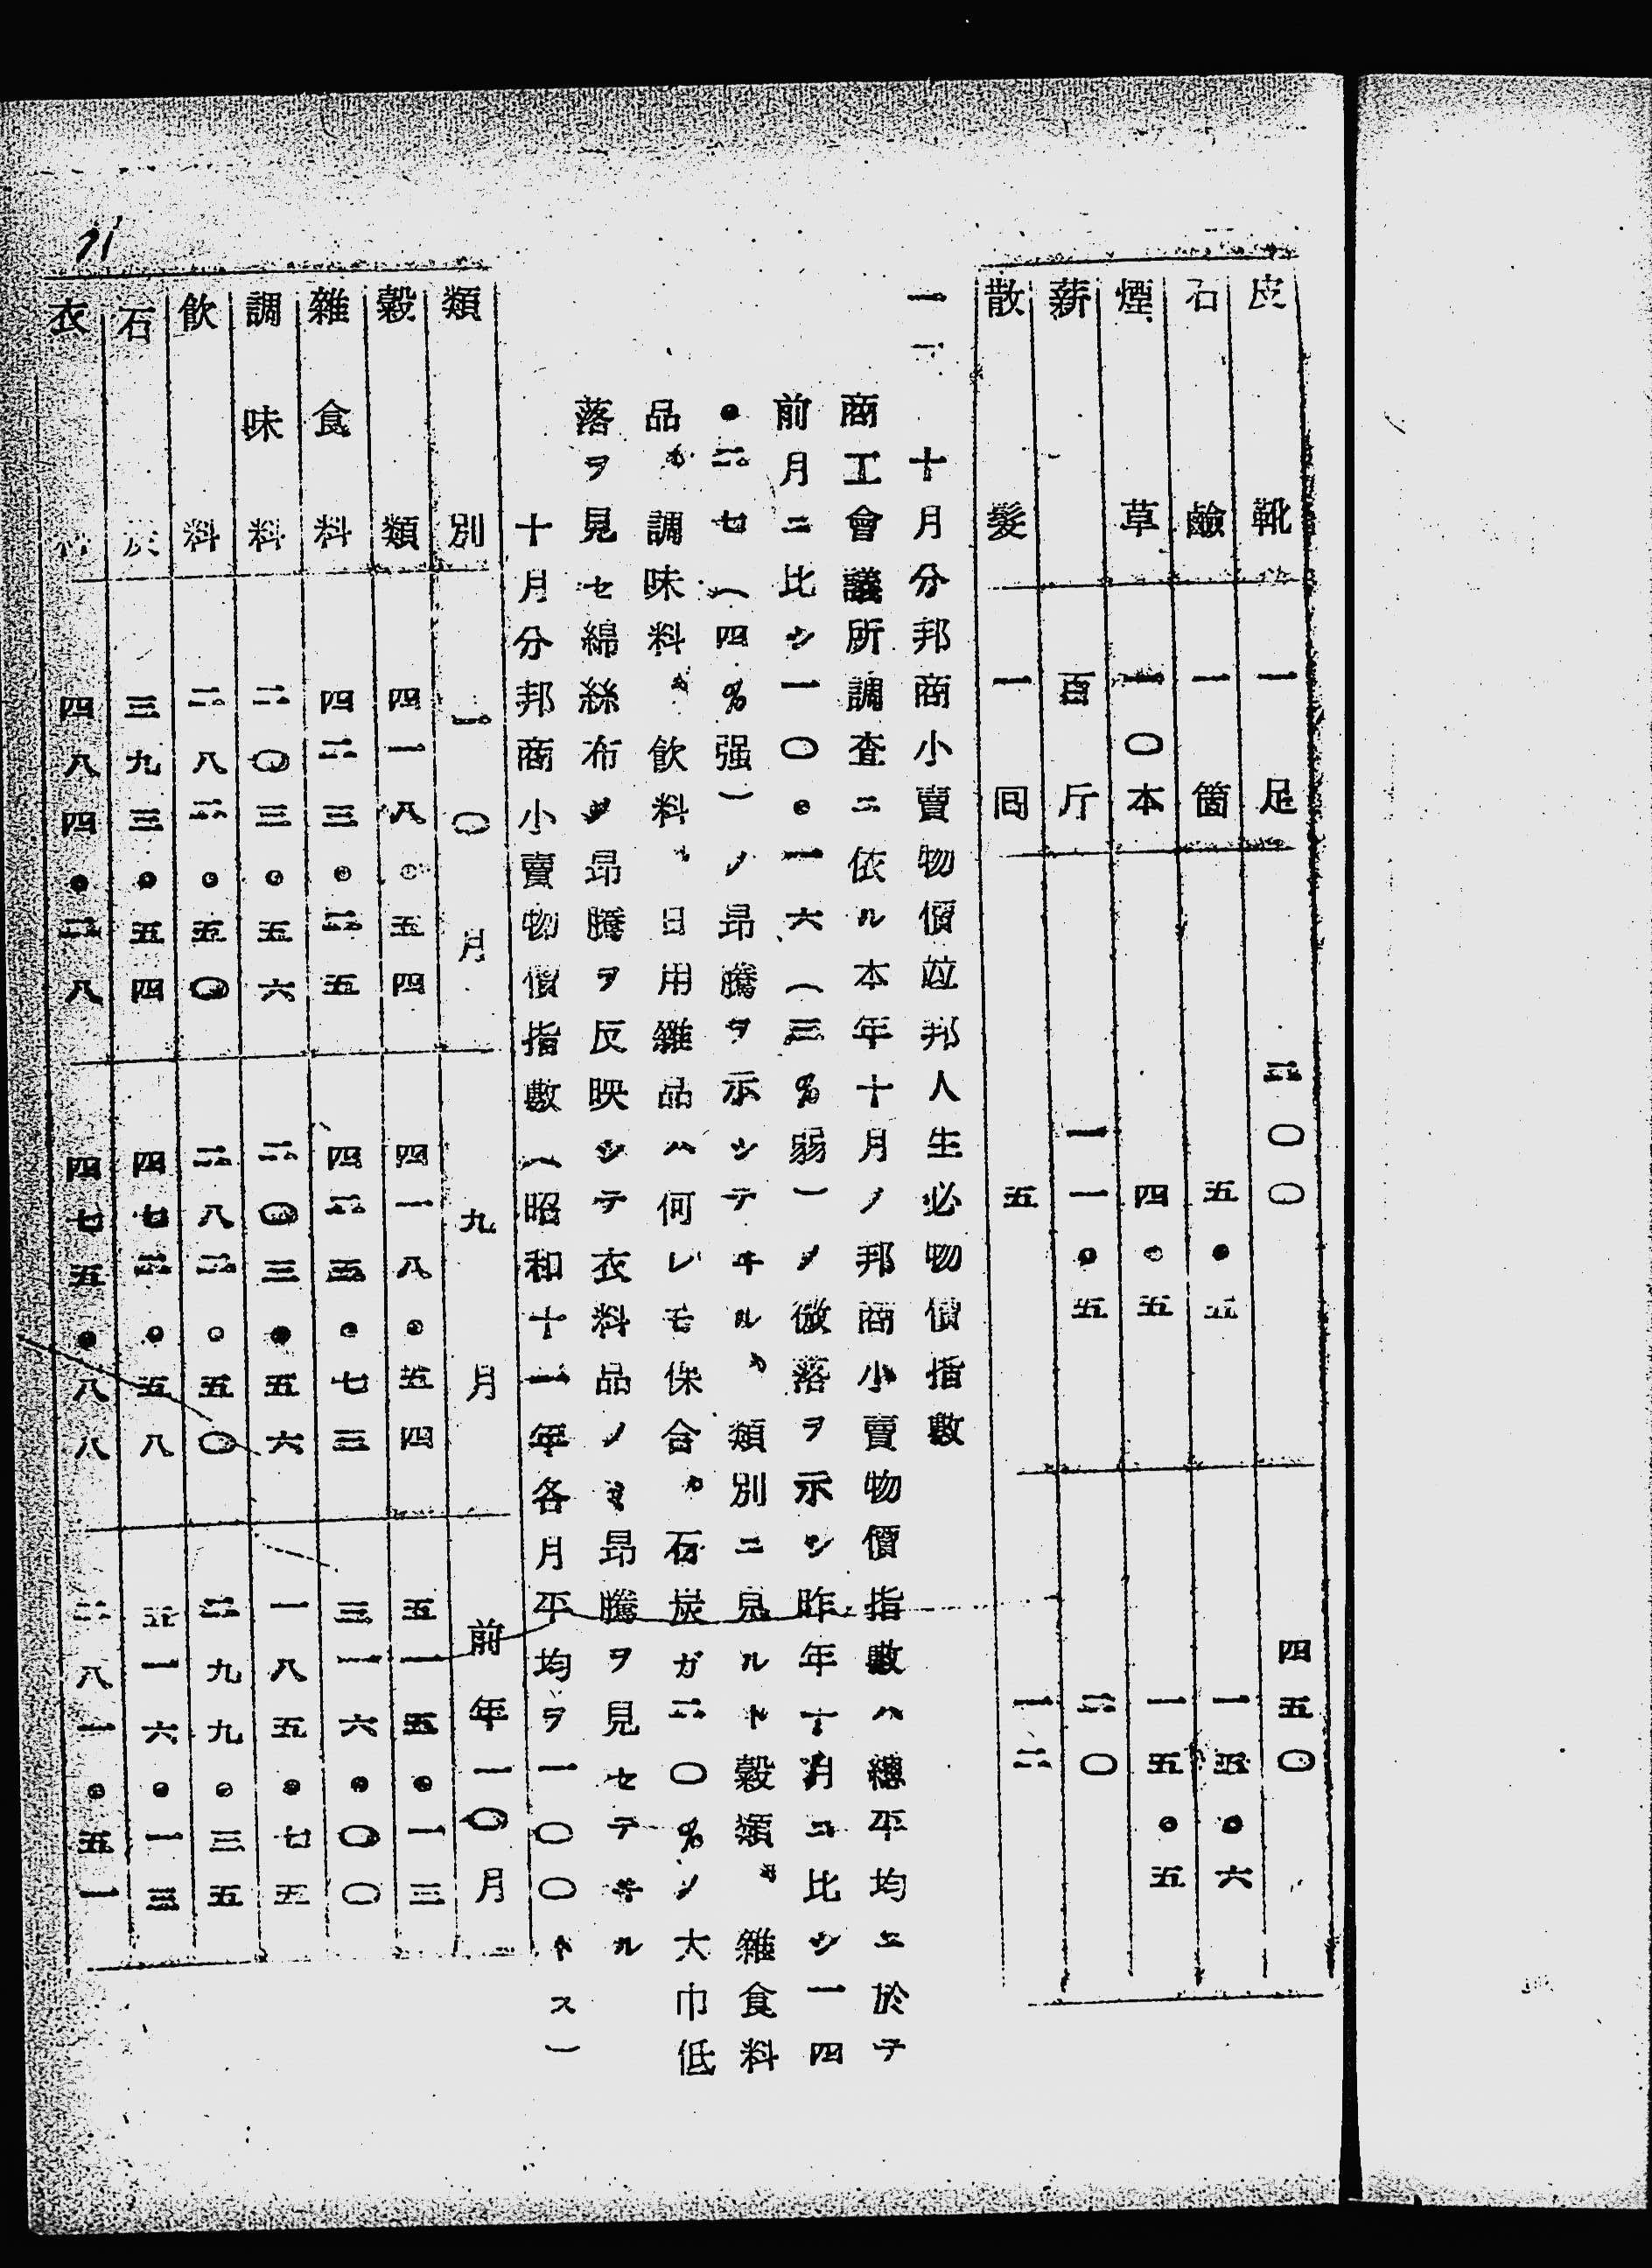 皮靴 一足 二〇〇 四五〇
石鹼 一箇 五・五 一五・六
煙草 一〇本 四・五 一五・五
薪 百斤 一一・五 二〇
散髮 一囘 五 一二
一二 十月分邦商小賣物價竝邦人生必物價指數
商工會議所調査ニ依ル本年十月ノ邦商小賣物價指數ハ總平均ニ於テ
前月ニ比シ一〇・一六(三%弱)ノ微落ヲ示シ昨年十月ニ比シ一四
・二七(四%强)ノ昂騰ヲ示シテヰル、類別ニ見ルト穀類、雜食料
品、調味料、飲料、日用雜品ハ何レモ保合、石炭ガ二〇%ノ大巾低
落ヲ見セ綿絲布ノ昂騰ヲ反映シテ衣料品ノミ昂騰ヲ見セテヰル
十月分邦商小賣物價指數(昭和十一年各月平均ヲ一〇〇トス)
類別 一〇月 九月 前年一〇月
穀類 四一八・五四 四一八・五四 五一五・一三
雜食料 四二三・二五 四二三・七三 三一六・〇〇
調味料 二〇三・五六 二〇三・五六 一八五・七五
飲料 二八二・五〇 二八二・五〇 二九九・三五
石炭 三九三・五四 四七二・五八 五一六・一三
衣料 四八四・二八 四七五・八八 二八一・五一
71